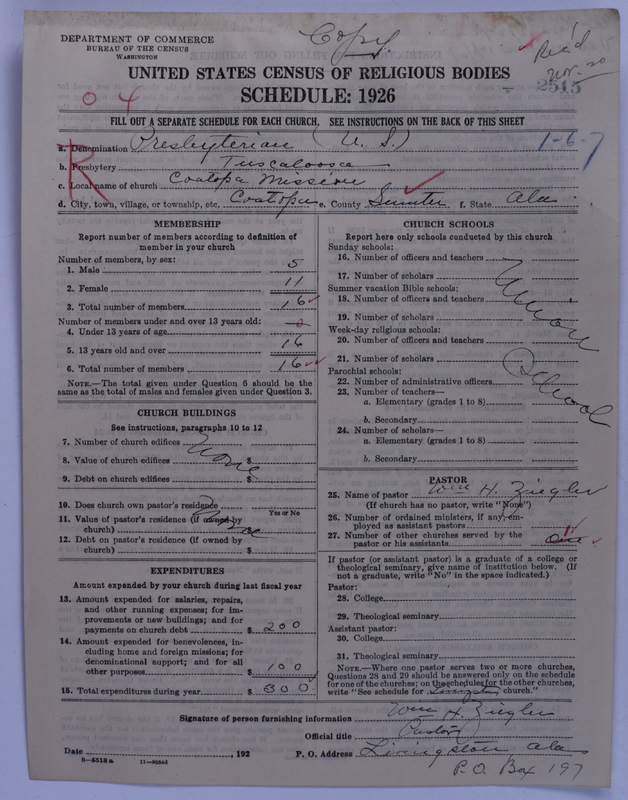 DEPARTMENT OF COMMERCE
BUREAU OF THE CENSUS
WASHINGTON
Copy.
Rec'd
Nov. 20
2515
UNITED STATES CENSUS OF RELIGIOUS BODIES
SCHEDULE: 1926
0 4
FILL OUT A SEPARATE SCHEDULE FOR EACH CHURCH. SEE INSTRUCTIONS ON THE BACK OF THIS SHEET
R
1-6-7
a. Denomination Presbyterian (U. S.)
b. Presbytery Tuscaloosa
c. Local name of church Coatopa Mission
d. City, town, village, or township, etc. Coatopa e. County Sumter f. State Ala.
MEMBERSHIP
Report number of members according to definition of
member in your church
Number of members, by sex:
1. Male 5
2. Female 11
3. Total number of members 16
Number of members under and over 13 years old:
4. Under 13 years of age 0
5. 13 years old and over 16
6. Total number of members 16
NOTE.—The total given under Question 6 should be
same as the total of males and females given under Question 3.
CHURCH BUILDINGS
See instructions, paragraphs 10 to 12
7. Number of church edifices
8. Value of church edifices None
9. Debt on church edifices $
10. Does church own pastor's residence?
Yes or No
11. Value of pastor's residence (if owned by
church) $
12. Debt on pastor's residence (if owned by
church) $
EXPENDITURES
Amount expended by your church during last fiscal year
13. Amount expended for salaries, repairs,
and other running expenses; for im-
provements or new buildings; and for
payments on church debt $ 200
14. Amount expended for benevolences, in-
cluding home and foreign missions; for
denominational support; and for all
other purposes $ 100
15. Total expenditures during year $ 300
CHURCH SCHOOLS
Report here only schools conducted by this church
Sunday schools:
16. Number of officers and teachers
17. Number of scholars
Summer vacation Bible schools:
18. Number of officers and teachers
19. Number of scholars
Week-day religious schools:
20. Number of officers and teachers
21. Number of scholars
Parochial schools:
22. Number of administrative officers
23. Number of teachers—
a. Elementary (grades 1 to 8)
b. Secondary
24. Number of scholars—
a. Elementary (grades 1 to 8)
b. Secondary
Union School
PASTOR
25. Name of pastor Wm H. Ziegler
(If church has no pastor, write "None")
26. Number of ordained ministers, if any, em-
ployed as assistant pastors
27. Number of other churches served by the
pastor or his assistants one
If pastor (or assistant pastor) is a graduate of a college or
theological seminary, give name of institution below. (If
not a graduate, write "No" in the space indicated.)
Pastor:
28. College
29. Theological seminary
Assistant pastor:
30. College
31. Theological seminary
NOTE.—Where one pastor serves two or more churches,
Questions 28 and 29 should be answered only on the schedule
for one of the churches; on the schedules for the other churches,
write "See schedule for Livingston church."
Signature of person furnishing information Wm H. Ziegler
Official title Pastor
Date , 192
P. O. Address Livingston Ala
P.O. Box 197
8—5518a